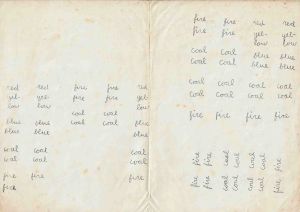 red red fire fire red
yel- yel- fire fire yel-
low low low
coal coal
blue blue coal coal blue
blue blue blue
coal coal coal
coal coal coal
fire fire fire
fire
fire fire red red
fire fire yel- yel-
low low
coal coal blue blue
coal coal blue blue
coal coal coal coal
coal coal coal coal
fire fire fire fire
fire fire coal coal
fire fire coal coal coal fire
coal coal fire